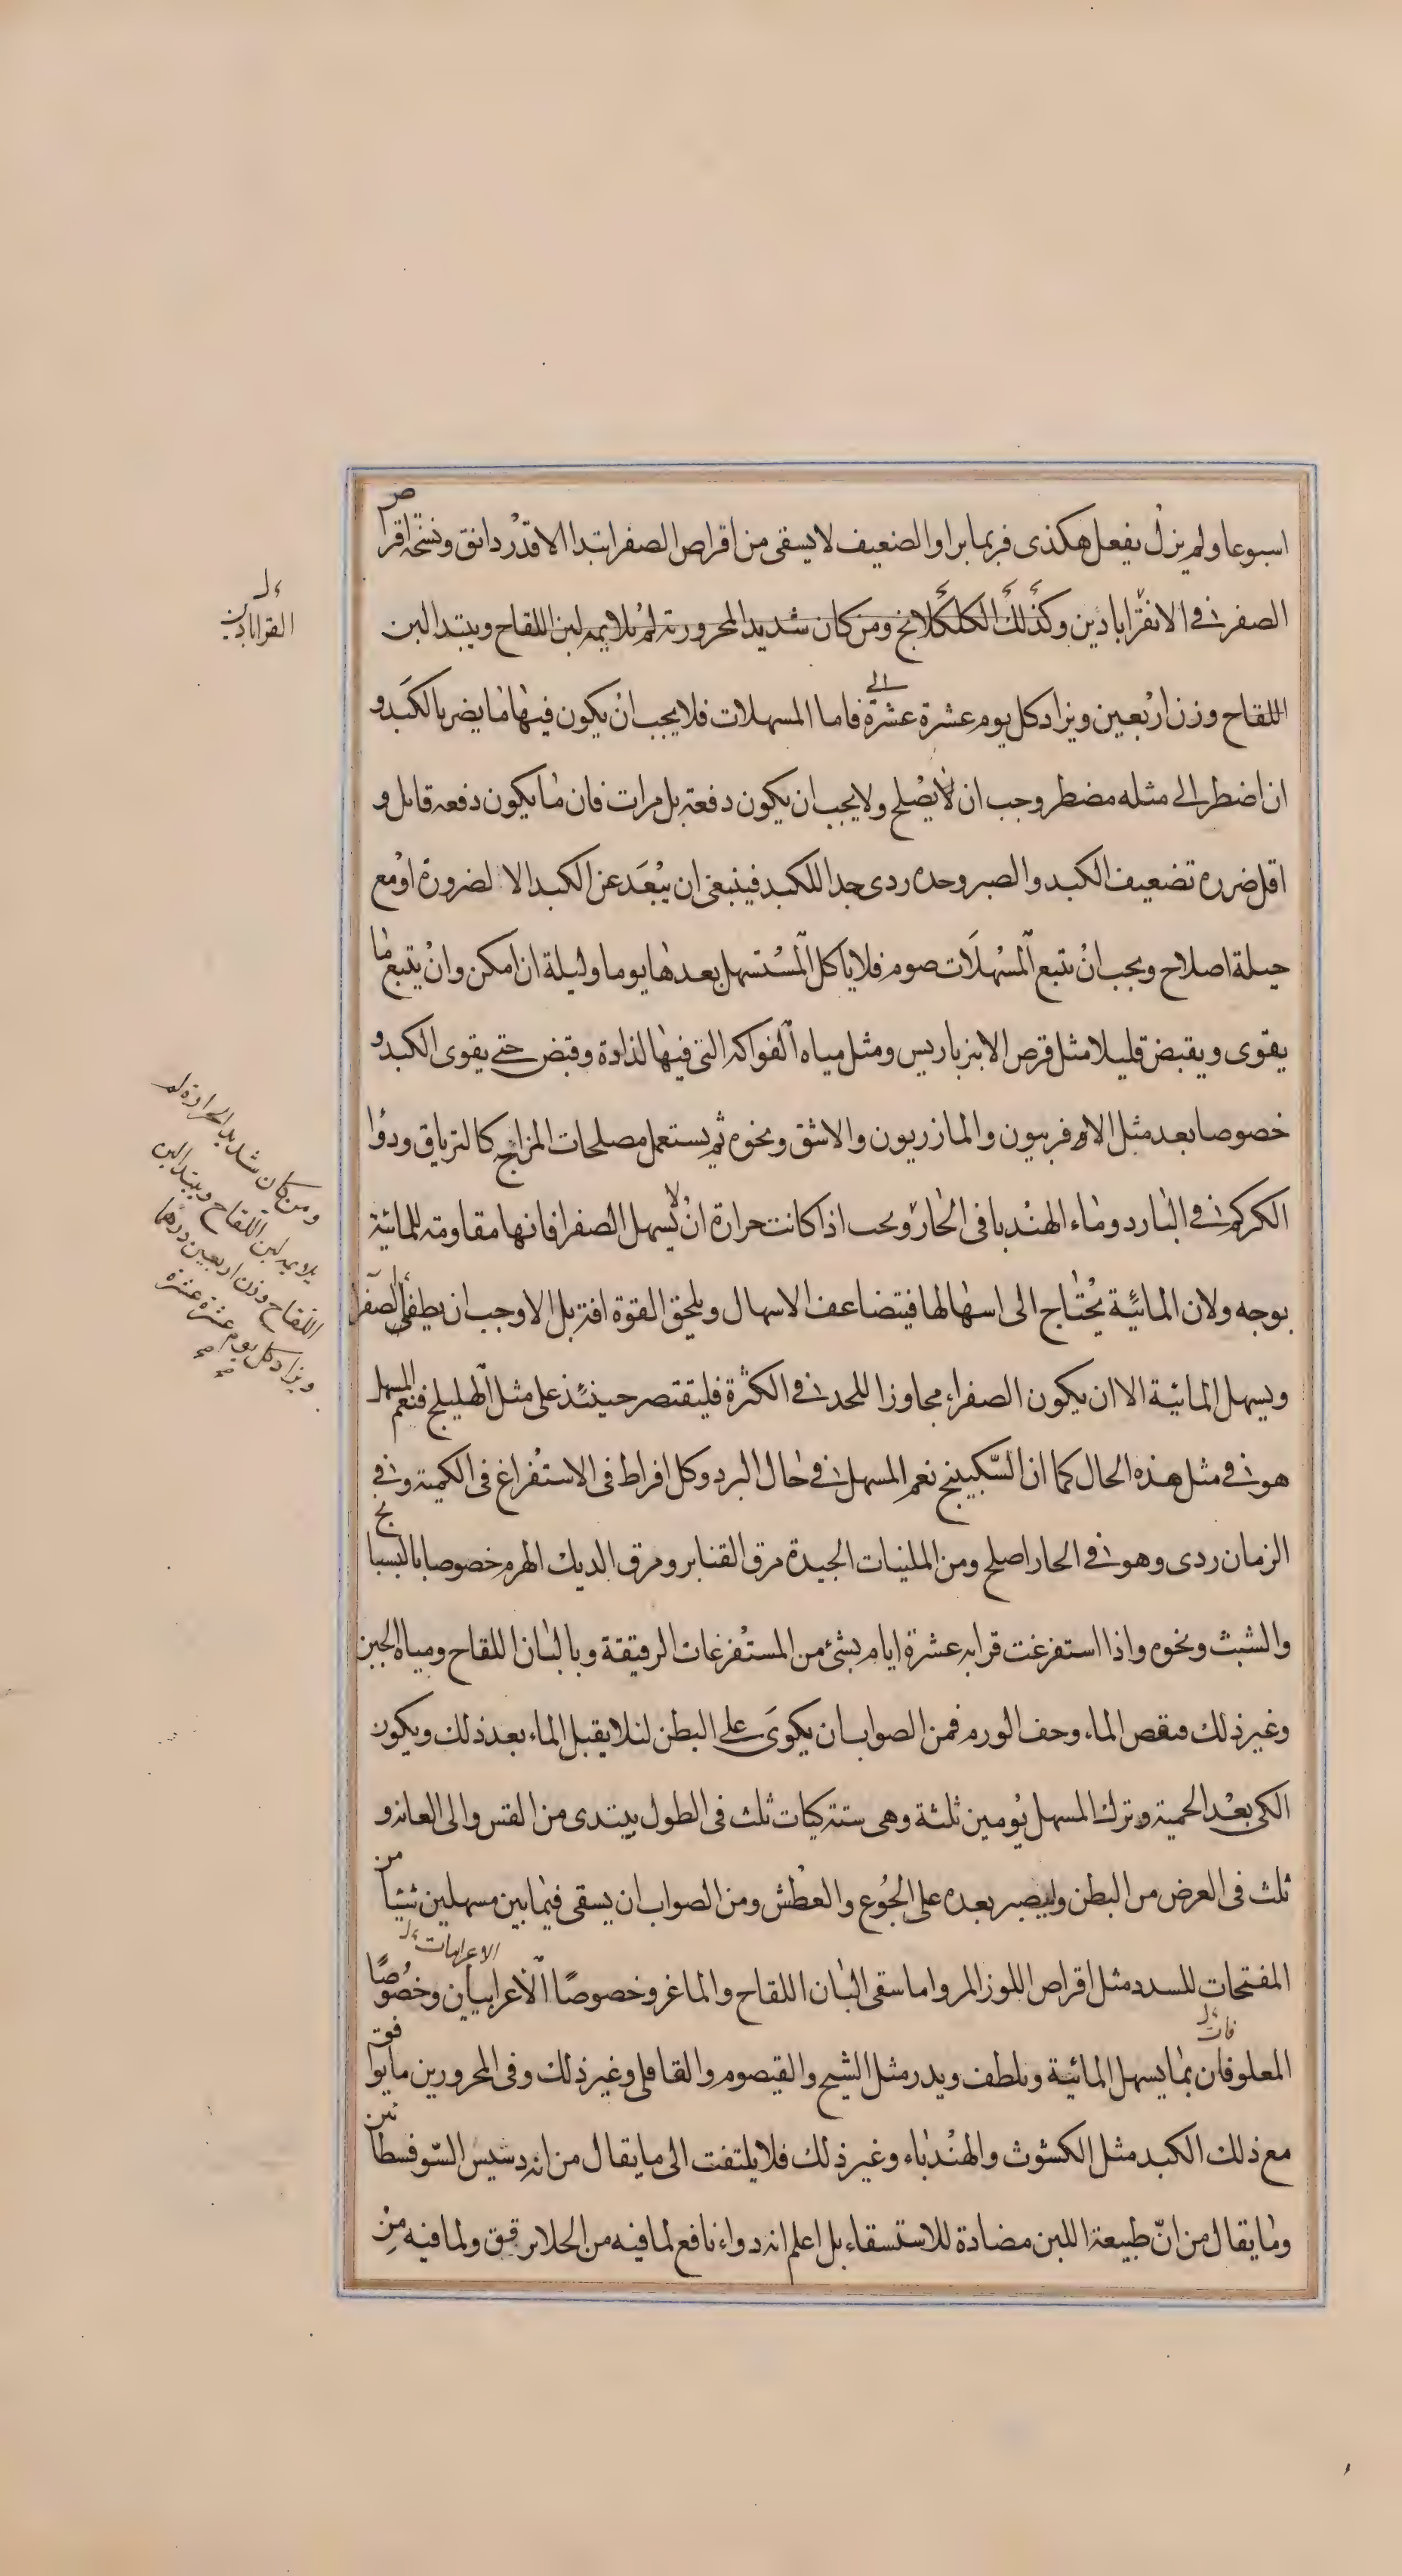 اسبوعا ولم يزل يفعل هكذى فربما برا والضعيف لا يسقى من اقراص الصفر ابتدا الا قدر دانق ونسخة اقراص
الصفر فى الانقراباذين وكذلك الكلكلانج ومن كان شديد المحرورية لم يلايمه لبن اللقاح ويبتدا لبن
اللقاح وزن اربعين ويزاد كل يوم عشرة الى عشرة فاما المسهلات فلا يجب ان يكون فيها ما يضر بالكبد و
ان اضطر الى مثله مضطر وجب ان لا يصلح ولا يجب ان يكون دفعة بل مرات فان ما يكون دفعه قاتل و
اقل ضرره تضعيف الكبد والصبر وحده ردى جدا للكبد فينبغى ان يبعد عن الكبد الا لضرورة او مع
حيلة اصلاح ويجب ان يتبع المسهلات صوم فلا ياكل المستسهل بعدها يوما وليلة ان امكن وان يتبع ما
يقوى ويقبض قليلا مثل قرص الانبرباريس ومثل مياه الفواكه التى فيها لذاذة وقبض حتى يقوى الكبد و
خصوصا بعد مثل الاوفربيون والمازريون والاشق ونحوه ثم يستعمل مصلحات المزاج كالترياق ودوا
الكركم فى البارد وماء الهندبا فى الحار ويجب اذا كانت حرارة ان لا يسهل الصفرا فانها مقاومة للمائية
بوجه ولان المائية يحتاج الى اسهالها فيتضاعف الاسهال ويلحق القوة افة بل الاوجب ان يطفى الصفرا
ويسهل المائية الا ان يكون الصفراء مجاوزا للحد فى الكثرة فليقتصر حينئذ على مثل الهليلج فنعم المسهل
هو فى مثل هذه الحال كما ان السكبينج نعم المسهل فى حال البرد وكل افراط فى الاستفراغ فى الكمية وفى
الزمان ردى وهو فى الحار اصلح ومن الملينات الجيدة مرق القنابر ومرق الديك الهرم خصوصا بالبسبايج
والشبث ونحوه واذا استفرغت قرابه عشرة ايام بشئ من المستفرغات الرقيقة وبالبان اللقاح ومياه الجبن
وغير ذلك فنقص الماء وخف الورم فمن الصواب ان يكوى على البطن لئلا يقبل الماء بعد ذلك ويكون
الكى بعد الحمية وترك المسهل يومين ثلثة وهى ستة كيات ثلث فى الطول يبتدى من القس والى العانة و
ثلث فى العرض من البطن وليصبر بعده على الجوع والعطش ومن الصواب ان يسقى فيما بين مسهلين شيئا من
المفتحات للسدد مثل اقراص اللوز المر واما سقى البان اللقاح والماغر وخصوصا الاعرابيان وخصوصا
المعلوفان بما يسهل المائية ويلطف ويدر مثل الشيح والقيصوم والقاقلى وغير ذلك وفى المحرورين ما يوافق
مع ذلك الكبد مثل الكشوث والهندباء وغير ذلك فلا يلتفت الى ما يقال من انه دسيس السوفسطائين
وما يقال من ان طبيعة اللبن مضادة للاستسقاء بل اعلم انه دواء نافع لما فيه من الجلا برقق ولما فيه من
القراباذين
ومن كان شديد الحرارة لم
يلايمه لبن اللقاح ويبتدا لبن
اللقاح وزن اربعين درهما
ويزاد كل يوم عشرة عشرة
صح صح
الاعرابيات
فات